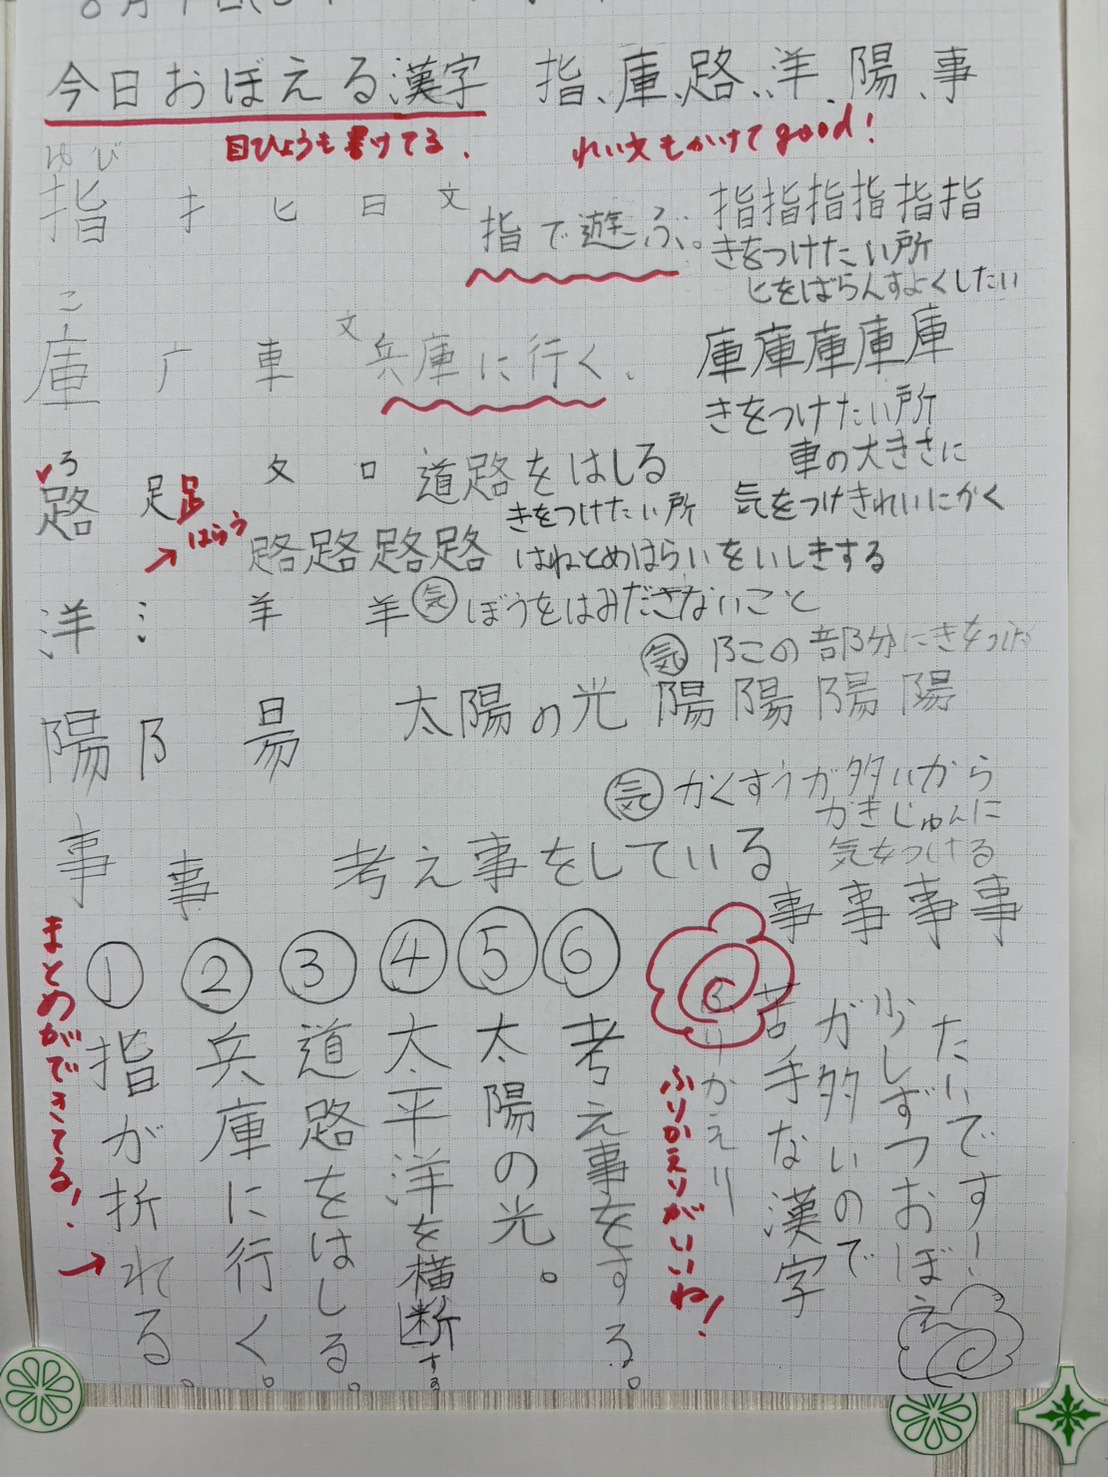 今日おぼえる漢字 指、庫、路、洋、陽、事
目ひょうも書けてる.
れい文もかけてgood!
ゆび
指 扌 ヒ 日 文 指で遊ぶ。
指指指指指指
きをつけたい所
ヒをばらんすよくしたい
こ
庫 广 車 文 兵庫に行く、
庫庫庫庫庫
きをつけたい所
車の大きさに
気をつけきれいにかく
ろ
路 足 足 夂 口 道路をはしる
はらう
路路路路
きをつけたい所
はねとめはらいをいしきする
洋 氵 羊 羊 気 ぼうをはみださないこと
気 阝この部分にきをつけ
陽 阝 昜 太陽の光 陽陽陽陽
気 かくすうが多いから
かきじゅんに
気をつける
事 事 考え事をしている
事事事事
まとめができてる!
① 指が折れる。
② 兵庫に行く。
③ 道路をはしる。
④ 太平洋を横断する
⑤ 太陽の光。
⑥ 考え事をする。
ふりかえり
ふりかえりがいいね!
苦手な漢字
が多いので
少しずつおぼえ
たいですー